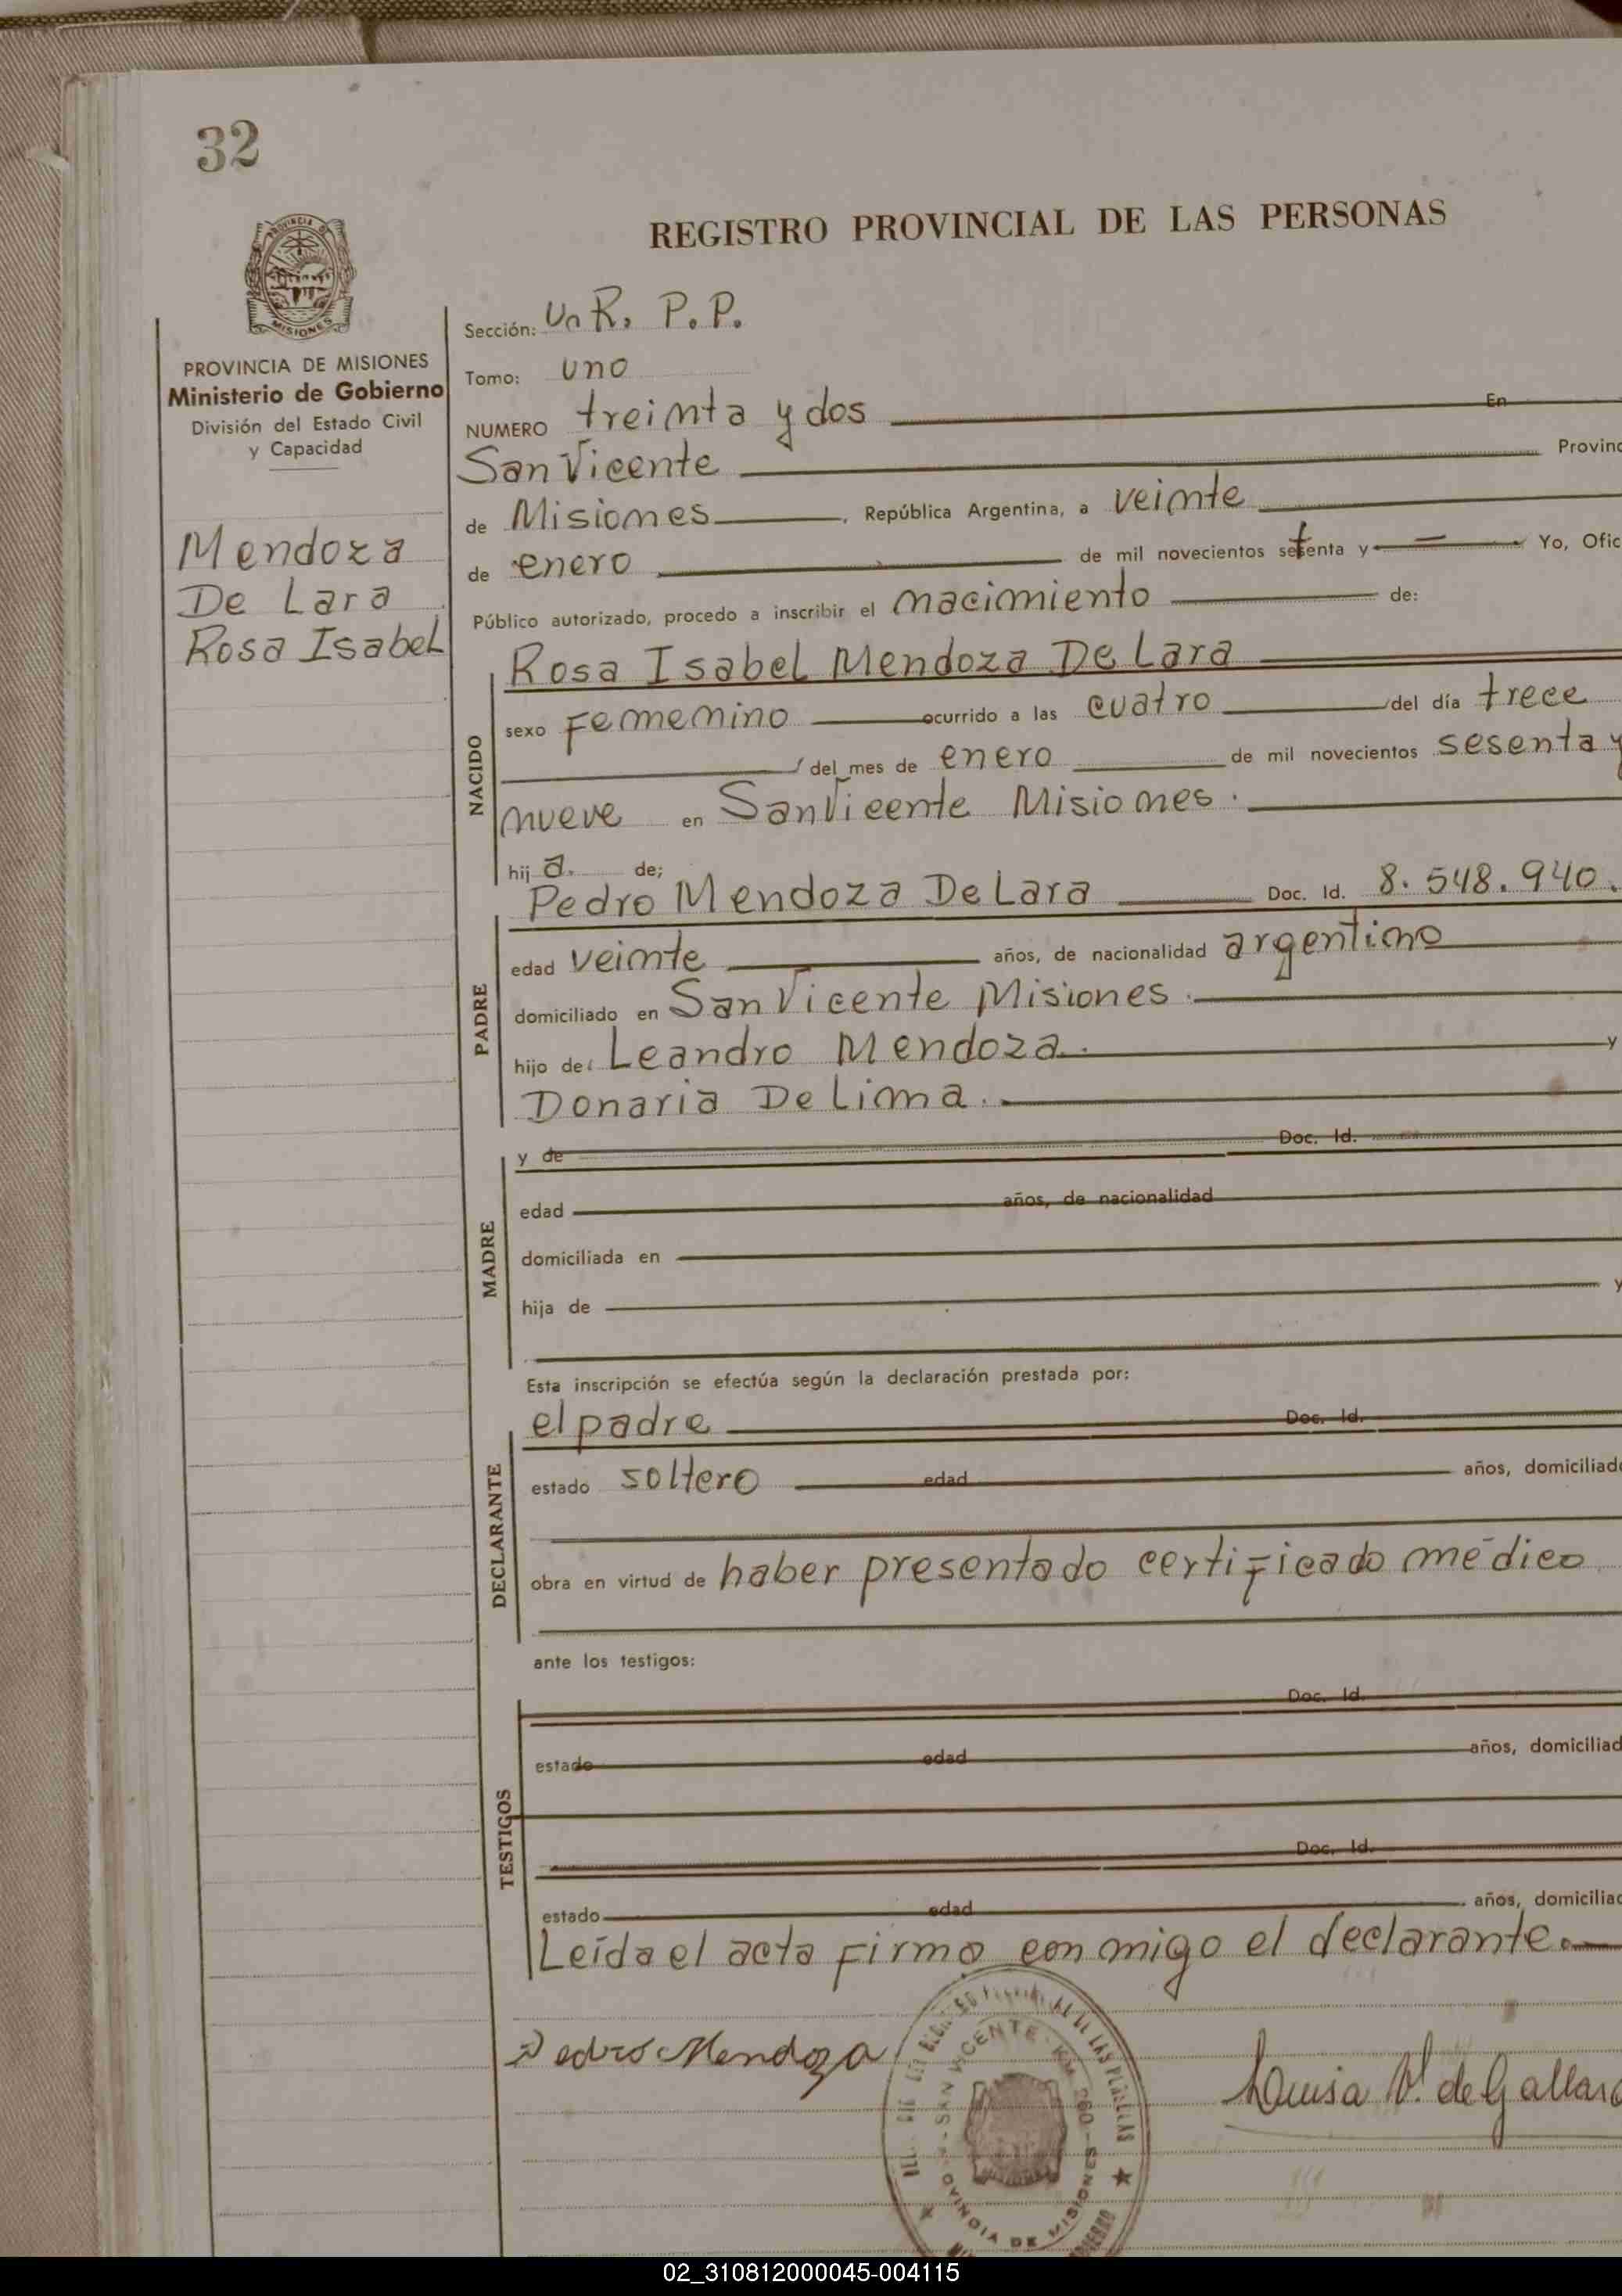 32
REGISTRO PROVINCIAL DE LAS PERSONAS
PROVINCIA DE MISIONES
Ministerio de Gobierno
División del Estado Civil
y Capacidad
Mendoza
De Lara
Rosa Isabel
Sección: R. P.P.
Tomo: uno
NUMERO treinta y dos En
San Vicente Provinc
de Misiones, República Argentina, a veinte
de enero de mil novecientos setenta y — Yo, Ofic
Público autorizado, procedo a inscribir el nacimiento de:
NACIDO
Rosa Isabel Mendoza De Lara
sexo Femenino ocurrido a las cuatro del día trece
del mes de enero de mil novecientos sesenta y
nueve en San Vicente Misiones.
hija. de;
PADRE
Pedro Mendoza De Lara Doc. Id. 8.548.940.
edad veinte años, de nacionalidad argentino
domiciliado en San Vicente Misiones.
hijo de: Leandro Mendoza. y
Donaria De Lima.
MADRE
y de Doc. Id.
edad años, de nacionalidad
domiciliada en
hija de y
Esta inscripción se efectúa según la declaración prestada por:
DECLARANTE
el padre Doc. Id.
estado soltero edad años, domiciliado
obra en virtud de haber presentado certificado médico
ante los testigos:
TESTIGOS
Doc. Id.
estado edad años, domiciliad
Doc. Id.
estado edad años, domiciliad
Leída el acta firma conmigo el declarante.
Pedro Mendoza
Luisa V. de Gallard
SAN VICENTE - KM 260 -
PROVINCIA DE MISIONES
02_310812000045-004115